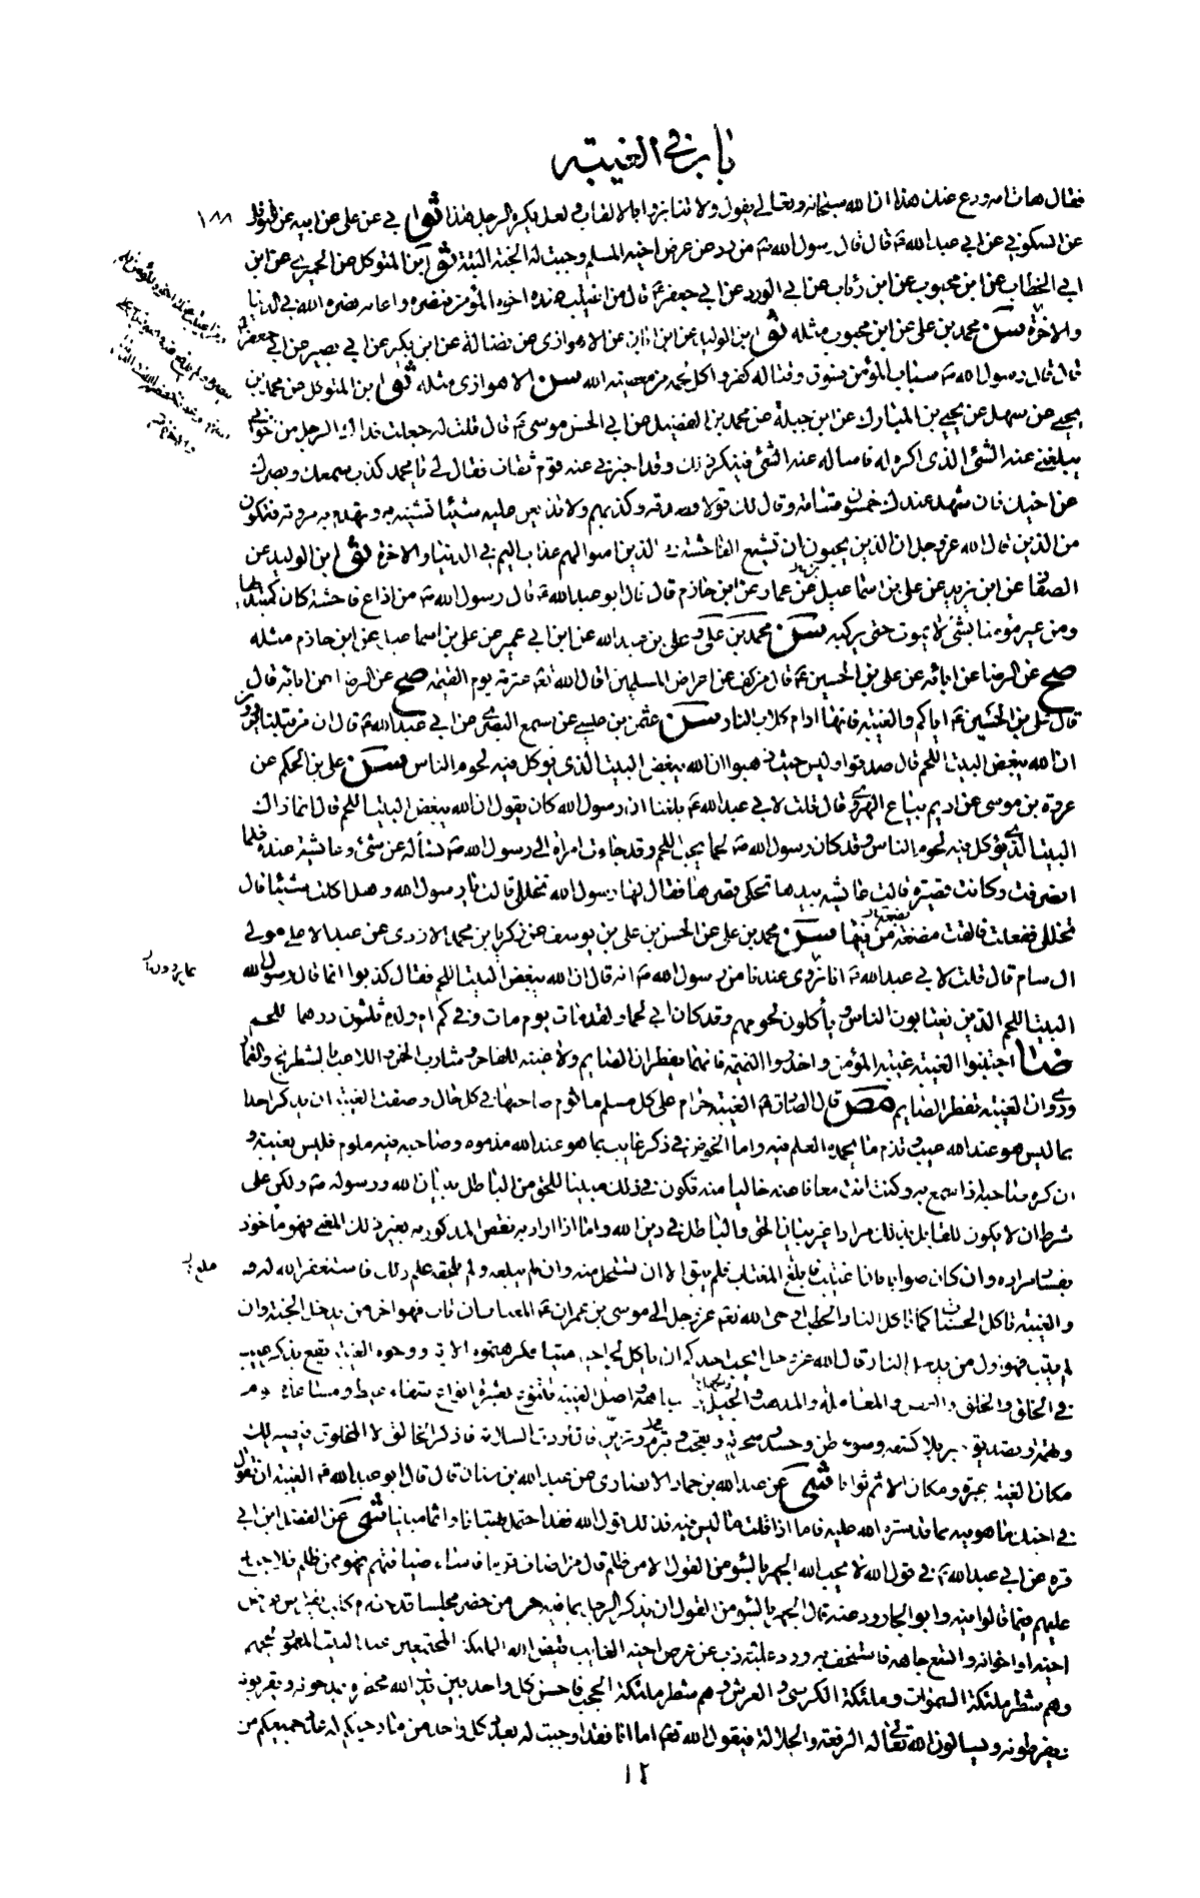 باب في الغيبة
فقال هات اسمه ودع عنك هذا ان الله سبحانه وتعالى يقول ولا تنابزوا بالالقاب فلعل يكره الرجل هذا ثو ابي عن علي عن ابيه عن النوفلي
١٨٨
عن السكوني عن ابي عبدالله ع قال قال رسول الله ص من رد عن عرض اخيه المسلم وجبت له الجنة البتة ثو ابن المتوكل عن الحميري عن ابن
ابي الخطاب عن ابن محبوب عن ابن رئاب عن ابي الورد عن ابي جعفر ع قال من اغتيب عنده اخوه المؤمن فنصره واعانه نصره الله في الدنيا
والاخرة سن محمد بن علي عن ابن محبوب مثله ثو ابن الوليد عن ابن ابان عن الاهوازي عن فضالة عن ابن بكير عن ابي بصير عن ابي جعفر ع
قال قال رسول الله ص سباب المؤمن فسوق وقتاله كفر واكل لحمه من معصية الله سن الاهوازي مثله ثو ابن المتوكل عن محمد بن
يحيى عن سهل عن يحيى بن المبارك عن ابن جبلة عن محمد بن الفضيل عن ابي الحسن موسى ع قال قلت له جعلت فداك الرجل من اخواني
يبلغني عنه الشئ الذي اكره له فاساله عنه الشئ فينكر ذلك وقد اخبرني عنه قوم ثقات فقال لي يا محمد كذب سمعك وبصرك
عن اخيك فان شهد عندك خمسون قسامة وقال لك قولا فصدقه وكذبهم ولا تذيعن عليه شيئا تشينه به وتهدم به مروته فتكون
من الذين قال الله عز وجل ان الذين يحبون ان تشيع الفاحشة في الذين امنوا لهم عذاب اليم في الدنيا والاخرة ثو ابن الوليد عن
الصفار عن ابن يزيد عن علي بن اسماعيل عن عمار عن ابن حازم قال قال ابو عبدالله ع قال رسول الله ص من اذاع فاحشة كان كمبتديها
ومن عير مؤمنا بشئ لا يموت حتى يركبه سن محمد بن علي وعلي بن عبدالله عن ابن ابي عمير عن علي بن اسماعيل عن ابن حازم مثله
صح عن الرضا عن ابائه عن علي بن الحسين ع قال من كف عن اعراض المسلمين اقال الله تعالى عثرته يوم القيمة صح عن الرضا عن ابائه قال
قال علي بن الحسين ع اياكم والغيبة فانها ادام كلاب النار سن عثمن بن عيسى عن مسمع البصري عن ابي عبدالله ع قال ان من قبلنا يروون
ان الله يبغض البيت اللحم قال صدقوا وليس حيث ذهبوا ان الله يبغض البيت الذي يوكل فيه لحوم الناس سن علي بن الحكم عن
عروة بن موسى عن اديم بياع الهروي قال قلت لابي عبدالله ع بلغنا ان رسول الله كان يقول ان الله يبغض البيت اللحم قال انما ذاك
البيت الذي يوكل فيه لحوم الناس وقد كان رسول الله ص لحما يحب اللحم وقد جاءت امراة الى رسول الله ص تسأله عن شئ وعائشة عنده فلما
انصرفت وكانت قصيرة قالت عائشة بيدها تحكي قصرها فقال لها رسول الله تخللي قالت يا رسول الله وهل اكلت شيئا قال
تخللي ففعلت فالقت مضغة من فيها سن محمد بن علي عن الحسن بن علي بن يوسف عن زكريا بن محمد الازدي عن عبد الاعلى مولى
ال سام قال قلت لابي عبدالله ع انا نروي عندنا عن رسول الله ص انه قال ان الله يبغض البيت اللحم فقال كذبوا انما قال رسول الله
البيت اللحم الذين يغتابون الناس ويأكلون لحومهم وقد كان ابي لحما ولقد مات يوم مات وفي كم ام ولده ثلثون درهما للحم
ضا اجتنبوا الغيبة غيبة المؤمن واحذروا النميمة فانهما يفطران الصايم ولا غيبة للفاجر وشارب الخمر واللاعب بالشطرنج والقمار
وروي ان الغيبة تفطر الصايم مص قال الصادق ع الغيبة حرام على كل مسلم ماثوم صاحبها في كل حال وصفة الغيبة ان يذكر احدا
بما ليس هو عند الله عيب وتذم ما يحمده العلم فيه واما الخوض في ذكر غايب بما هو عند الله مذموم وصاحبه فيه ملوم فليس بغيبة و
ان كره صاحبه اذا سمع به وكنت انت معافا عنه خاليا منه تكون في ذلك مبينا للحق من الباطل ببيان الله ورسوله ص ولكن على
شرط ان لا يكون للقايل بذلك مراد غير بيان الحق والباطل في دين الله واما اذا اراد به نقص المذكور به بغير ذلك المعنى فهو ماخوذ
بفساد مراده وان كان صوابا فان اغتبت فابلغ المغتاب فلم يبق الا ان تستحل منه وان لم يبلغه ولم يلحقه علم ذلك فاستغفر الله له و
والغيبة تاكل الحسنات كما تاكل النار الحطب اوحى الله تعالى عز وجل الى موسى بن عمران ع المغتاب ان تاب فهو اخر من يدخل الجنة وان
لم يتب فهو اول من يدخل النار قال الله عز وجل ايحب احدكم ان ياكل لحم اخيه ميتا فكرهتموه الاية ووجوه الغيبة تقع بذكر عيب
في الخلق والخلق والفعل والمعاملة والمذهب والجهل واصل الغيبة تتنوع بعشرة انواع شفاء غيظ ومساعدة قوم
وتهمة وتصديق خبر بلا كشفه وسوء ظن وحسد وسخرية وتعجب وتبرم وتزين فان اردت السلامة فاذكر الخالق لا المخلوق فيصير لك
مكان الغيبة عبرة ومكان الاثم ثوابا شى عن عبدالله بن حماد الانصاري عن عبدالله بن سنان قال قال ابو عبدالله ع الغيبة ان تقول
في اخيك ما هو فيه مما قد ستره الله عليه فاما اذا قلت ما ليس فيه فذلك قول الله فقد احتمل بهتانا واثما مبينا شى عن الفضل ابن ابي
قره عن ابي عبدالله ع في قول الله لا يحب الله الجهر بالسوء من القول الا من ظلم قال من اضاف قوما فاساء ضيافتهم فهو ممن ظلم فلا جناح
عليهم فيما قالوا فيه وابو الجارود عنه قال الجهر بالسوء من القول ان يذكر الرجل بما فيه م من حضر مجلسا قد حضره كلب يفترس عرض
اخيه او اخوانه واتسع جاهه فاستخف به ورد عليه وذب عن عرض اخيه الغايب قيض الله الملائكة المجتمعين عند البيت المعمور لحجهم
وهم شطر ملئكة السموات وملئكة الكرسي والعرش وهم شطر ملئكة الحجب فاحسن كل واحد بين يدي الله محضره يمدحونه ويقربونه
ويقرظونه ويسالون الله تعالى له الرفعة والجلالة فيقول الله تعالى اما انا فقد اوجبت له بعدد كل واحد من مادحيكم له عدد جميعكم من
١٢